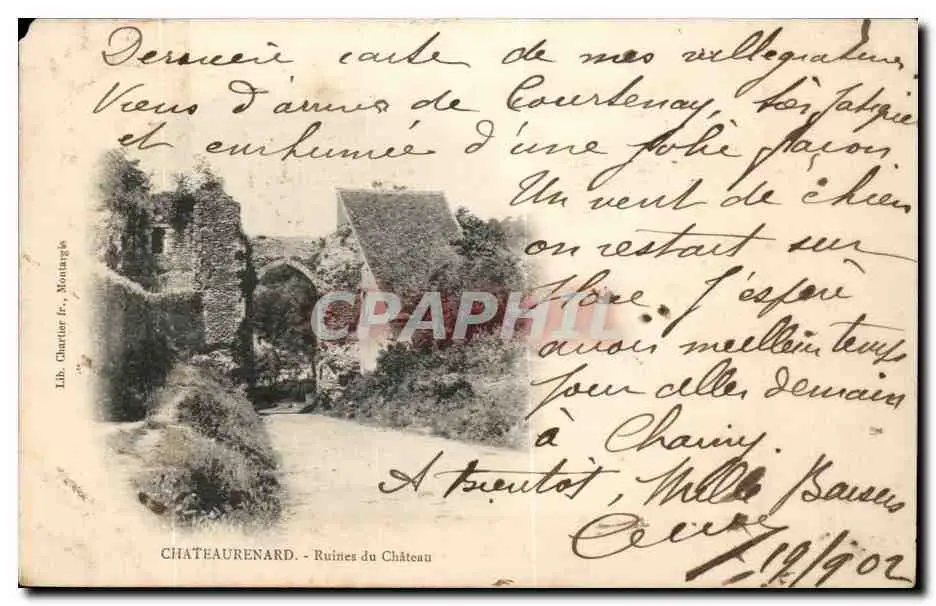 Dernière carte de mes villegiatures
Viens d'arriver de Courtenay, très fatiguée
et enrhumée d'une jolie façon
Un vent de chien
on restait sur
place. J'espère
avoir meilleur temps
pour aller demain
à Charny.
A bientôt, Mille Baisers
19/9 02
CHATEAURENARD. - Ruines du Château
Lib. Chartier fr., Montargis
CPARPHIL